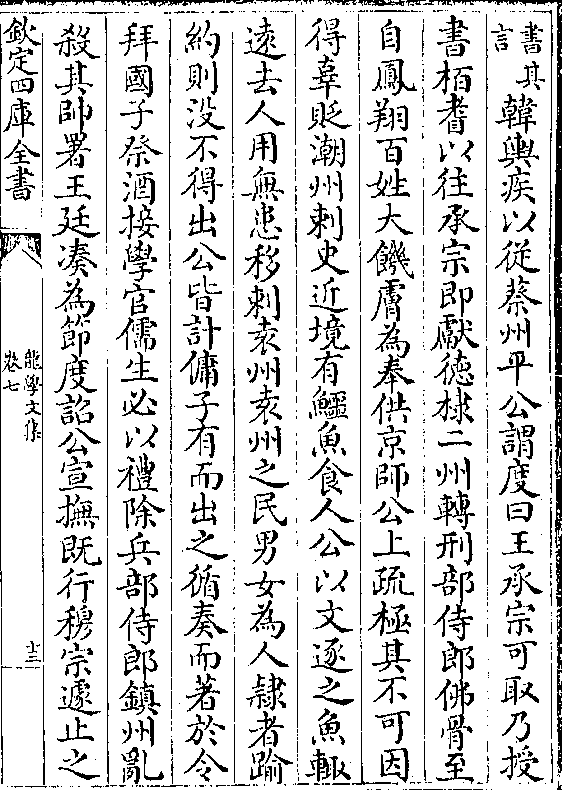 書其
言
韓輿疾以從蔡州平公謂度曰王承宗可取乃授
書栢耆以往承宗即獻德棣二州轉刑部侍郎佛骨至
自鳳翔百姓大饑膚為奉供京師公上疏極其不可因
得辜貶潮州刺史近境有鱷魚食人公以文逐之魚輙
遠去人用無患移刺袁州袁州之民男女為人隸者踰
約則没不得出公皆計傭子有而出之循奏而著於令
拜國子祭酒接學官儒生必以禮除兵部侍郎鎮州亂
殺其帥署王廷凑為節度詔公宣撫既行穆宗遽止之
欽定四庫全書
龍學文集
卷七
十三